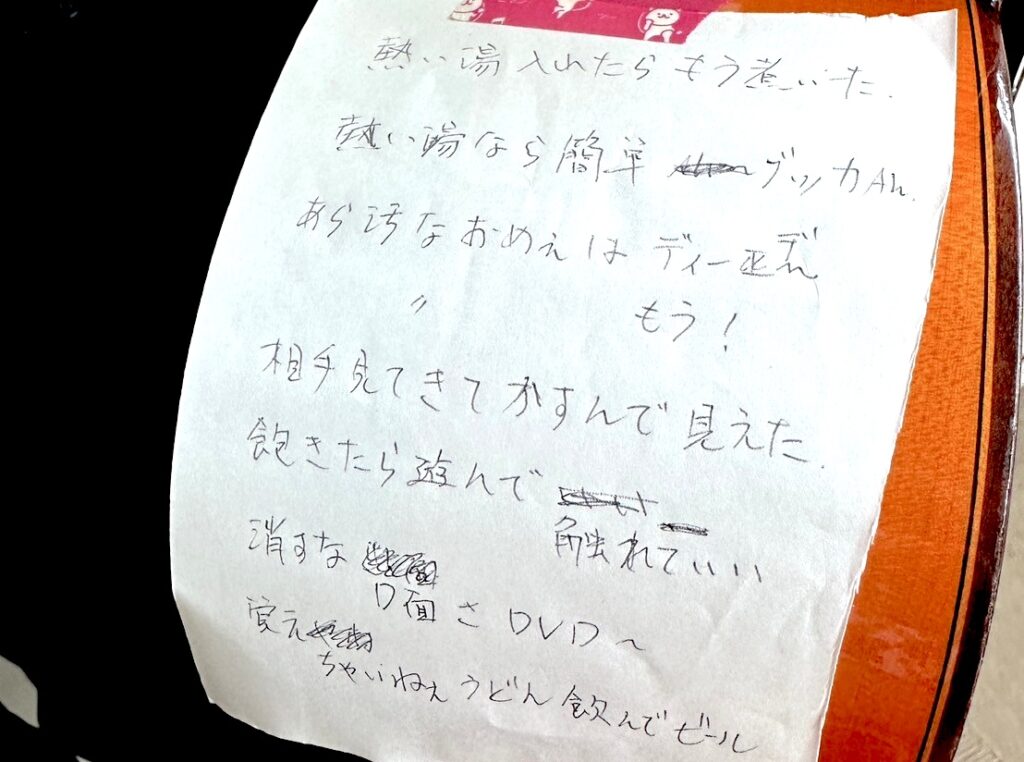 熱い湯入れたらもう煮いた.
熱い湯なら簡単 ブッカAh.
あら汚なおめえは ディー正デh
〃 もう!
相手見てきてかすんで見えた.
飽きたら遊んで
触れていい
消すな
D面さDVD〜
覚え
ちゃいねえうどん飲んでビール